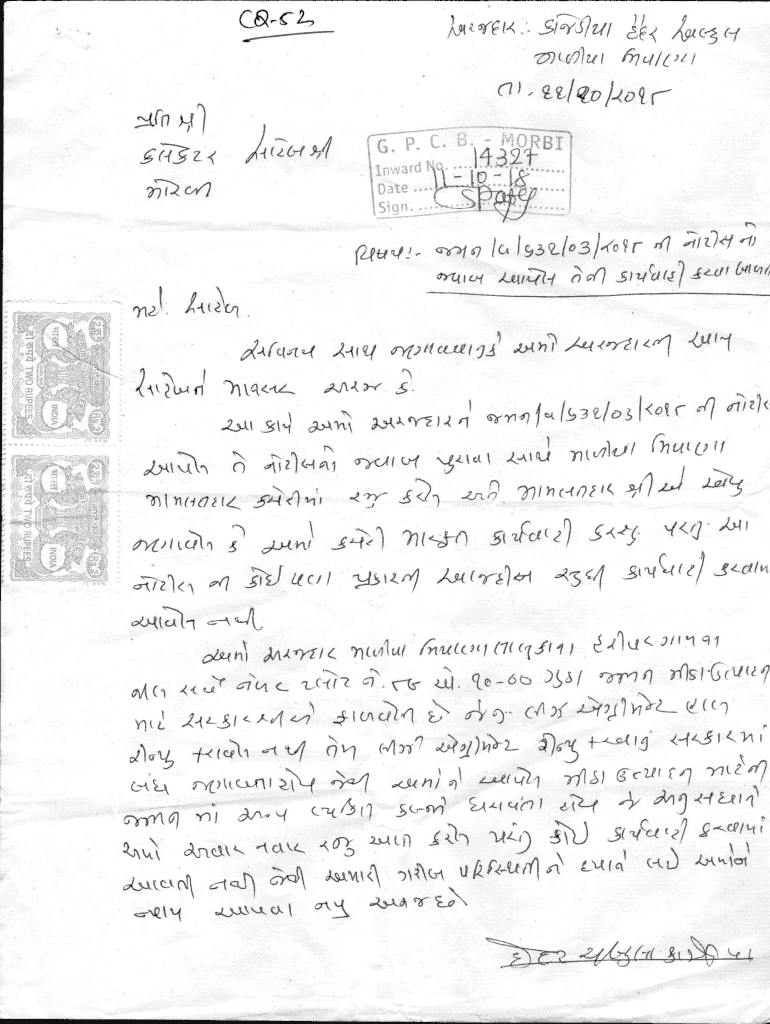 CQ-52
અરજદાર:- કાજેડીયા હૈદર અબ્દુલ
માળીયા મિયાણા
તા. ૧૧/૧૦/૨૦૧૮
પ્રતિ શ્રી
કલેકટર સાહેબશ્રી
મોરબી
G. P. C. B. - MORBI
Inward No. 14327
Date 11-10-18
Sign.
વિષય:- જમન/૫/૬૩૧/૦૩/૨૦૧૮ ની નોટીસ નો
જવાબ આપેલ તેની કાર્યવાહી કરવા બાબત
મે. સાહેબ.
સવિનય સાથ જણાવવાનુકે અમો અરજદારની આપ
સાહેબને માયસર અરજ કે.
આ કામે અમો અરજદારને જમન/૫/૬૩૧/૦૩/૨૦૧૮ ની નોટીસ
આપેલ તે નોટીસનો જવાબ પુરાવા સાથે માળીયા મિયાણા
મામલતદાર કચેરીમાં રજુ કરેલ અને મામલતદાર શ્રીએ એવુ
જણાવેલ કે અમો કચેરી મારફત કાર્યવાહી કરશુ પરંતુ આ
નોટીસ ની કોઈપણ પ્રકારની આજદીસ સુધી કાર્યવાહી કરવામાં
આવેલ નથી.
અમો અરજદાર માળીયા મિયાણા તાલુકાના હરીપર ગામના
સર્વે નંબર પ્લોટ નં. ૮૭ એ. ૧૦-૦૦ ગુઠા જમન મીઠા ઉત્પાદન
માટે સરકારશ્રીએ ફાળવેલ છે જેનુ લીઝ એગ્રીમેન્ટ હાલ
રીન્યુ કરાવેલ નથી તેમ લીઝ એગ્રીમેન્ટ રીન્યુ કરવાનું સરકારમાં
બંધ જણાવતા હોય જેથી અમોને આપેલ મીઠા ઉત્પાદન માટેની
જમન માં અન્ય વ્યકિત કબ્જો ધરાવતા હોય જે અનુસંધાને
અમો અવાર નવાર રજુઆત કરેલ પરંતુ કોઈ કાર્યવાહી કરવામાં
આવતી નથી જેથી અમારી ગરીબ પરિસ્થિતીને ધ્યાને લઈ અમોને
ન્યાય આપવા નમ્ર અરજ છે
TWO RUPEES
INDIA
TWO RUPEES
INDIA